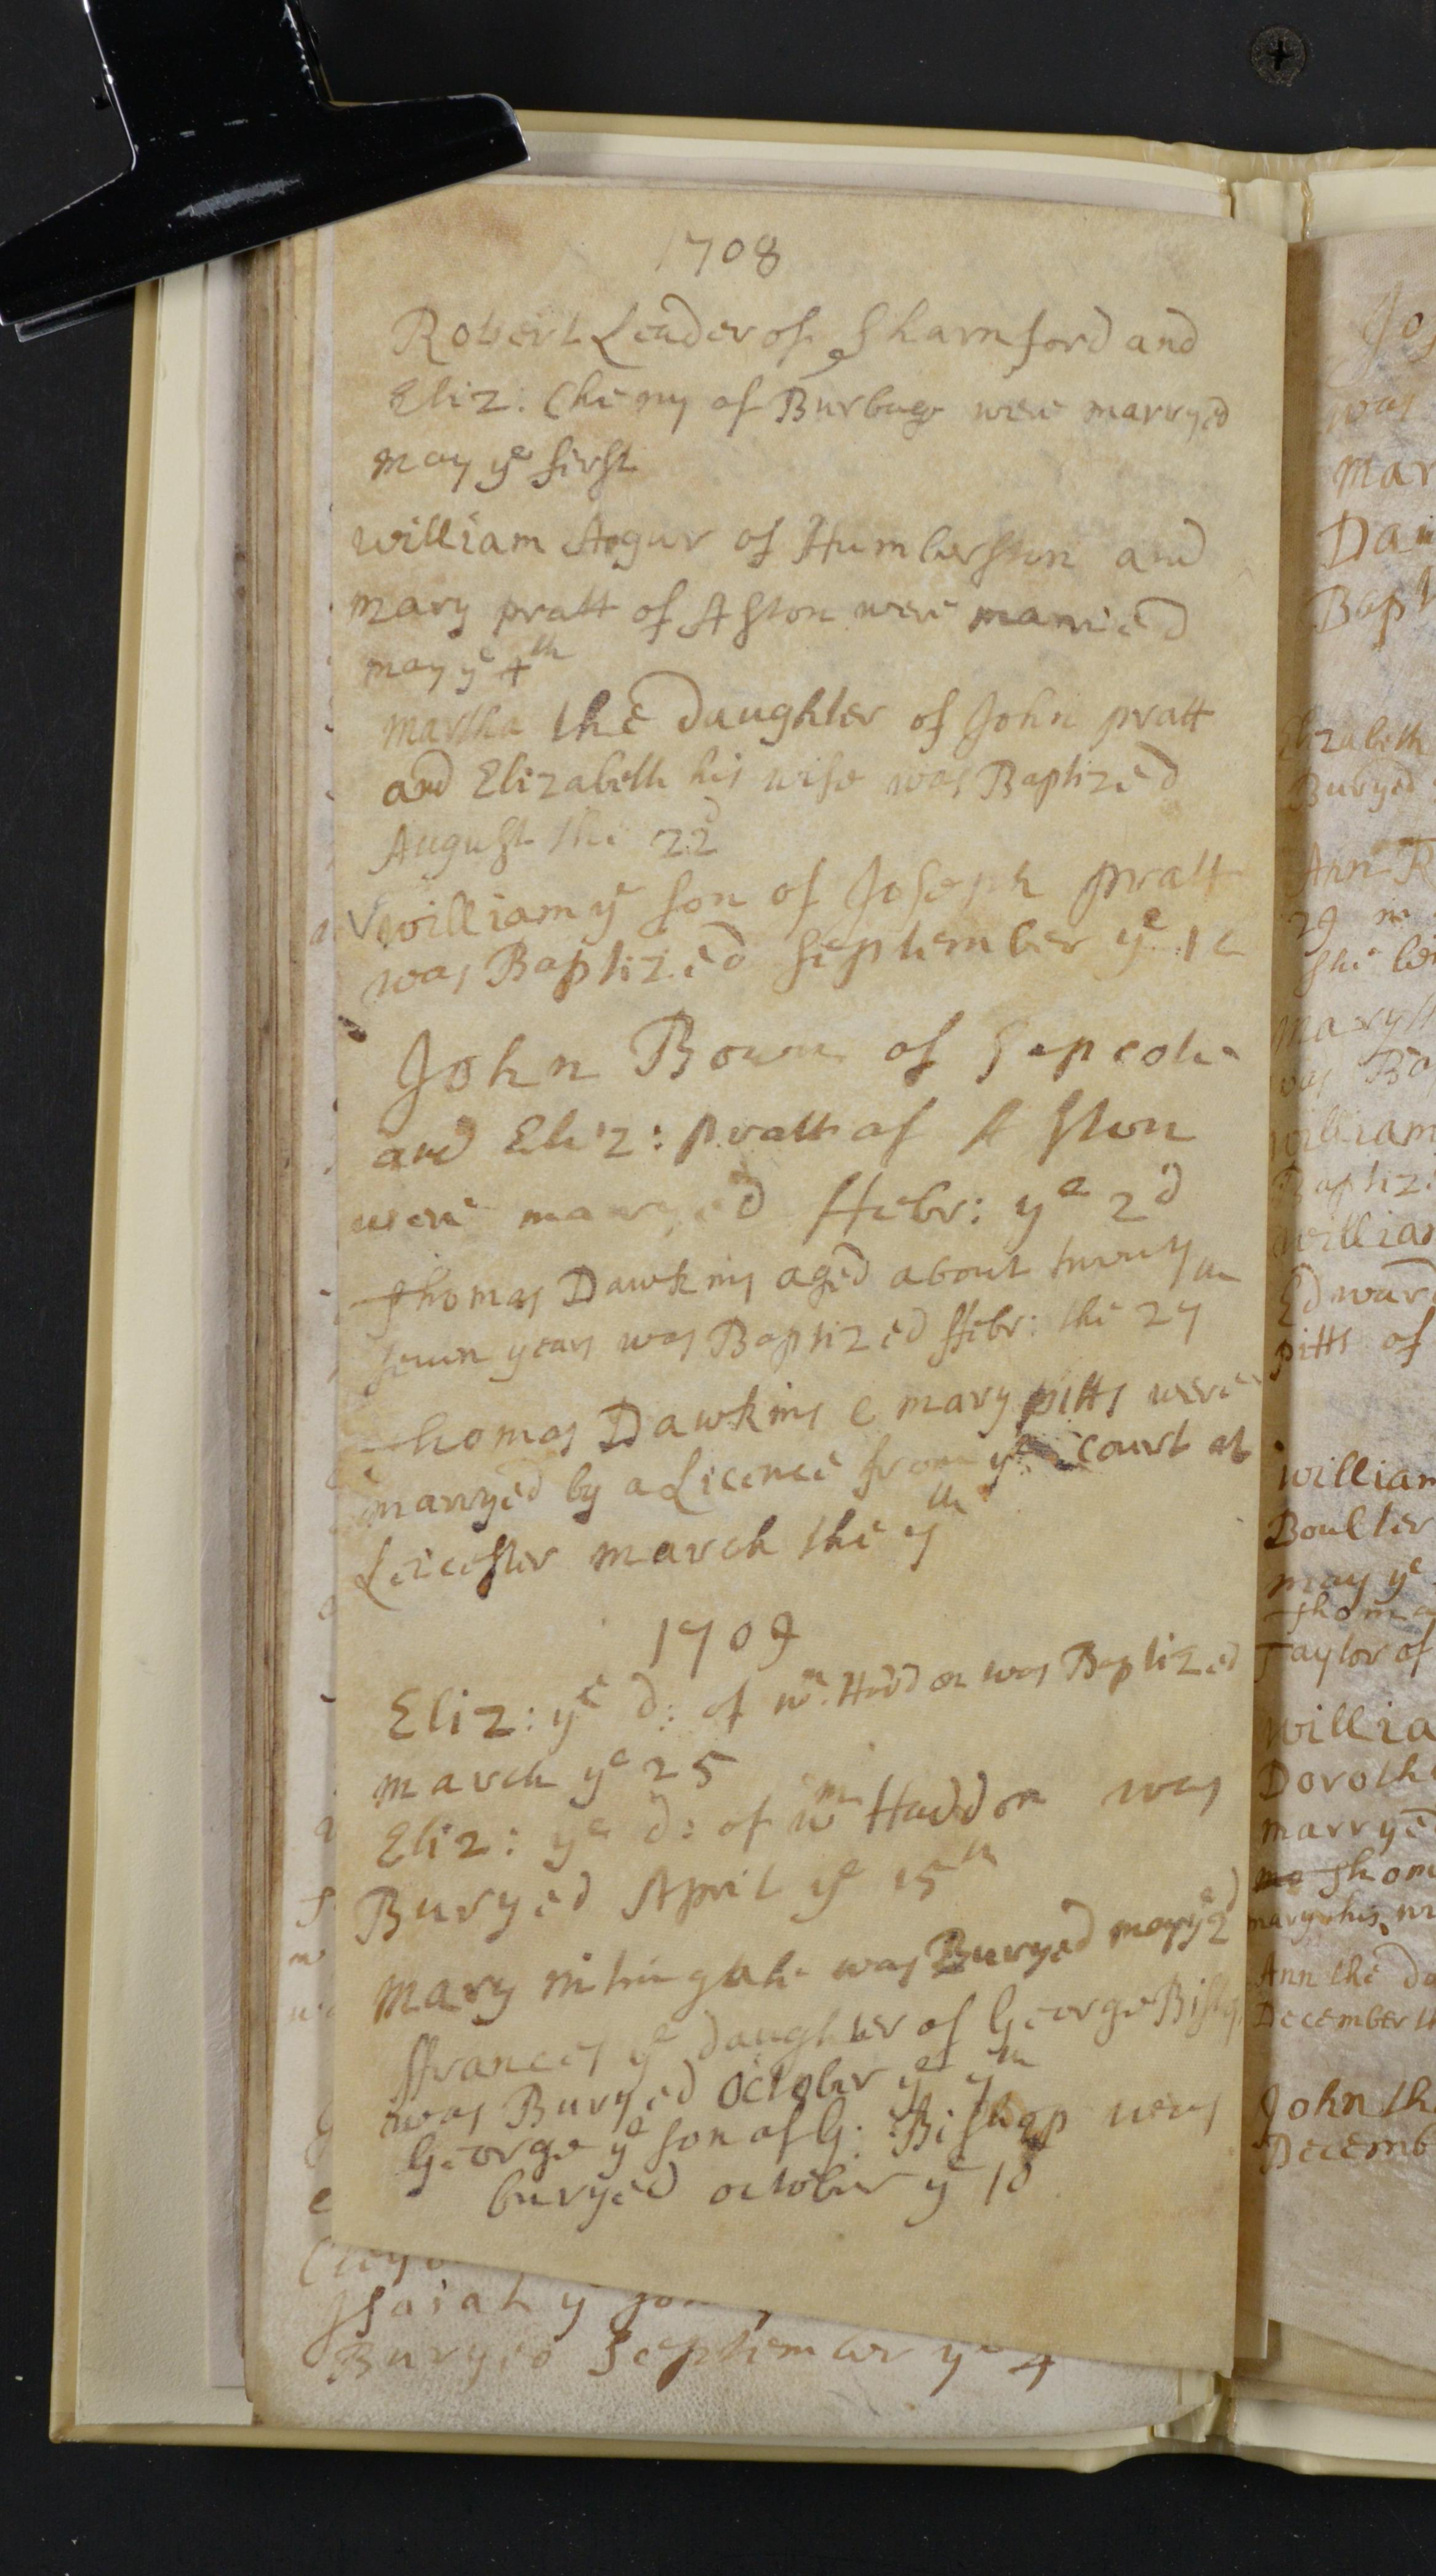 1708
Robert Leader of Sharnford and
Eliz: Cheny of Burbage were marryed
may ye first
William Aogur of Humberston and
mary pratt of Aston were married
may ye 4th
Martha the Daughter of John pratt
and Elizabeth his wife was Baptized
August the 22d
William ye son of Joseph pratt
was Baptized September ye
John of Sapcote
and Eliz: pratt of Aston
were marryed ffebr: ye 2d
Thomas Dawkins aged about twenty
seven years was Baptized ffebr: the 27th
Thomas Dawkins e mary pitts were
marryed by a Licence from ye court at
Leicester march the 7th
1709
Eliz: ye d: of Wm: Haddon was Baptized
march ye 25
Eliz: ye d: of Wm Haddon was
Buryed April ye 15th
Mary was Buryed may ye 2d
ffrances ye daughter of George
was Buryed October ye 7th
George ye son of G: Bishop was
buryed october ye 10
Isaiah ye
Buryed September ye 4
Mar
Bapt
Elizabeth
Buryed
Ann
29
she
was
William
Baptiz
William
Edward
pitts of
William
Boulter
may ye
Thomas
Taylor of
Willia
Doroth
marryed
mary his
Ann the da
December
John th
Decemb